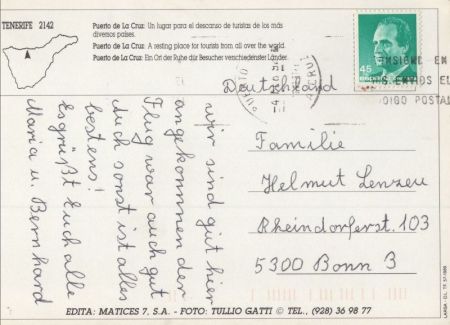 TENERIFE 2142
Puerto de La Cruz: Un lugar para el descanso de turistas de los más
diversos países.
Puerto de La Cruz: A resting place for tourists from all over the world.
Puerto de La Cruz: Ein Ort der Ruhe dür Besucher verschiedenster Länder.
45
ENSIGNE EN
S ENVIOS EL
ODIGO POSTAL
Deutschland
wir sind gut hier
angekommen der
Flug war auch gut
Auch sonst ist alles
bestens!
Es grüßt Euch alle
Maria u. Bernhard
Familie
Helmut Lenzen
Rheindorferst. 103
5300 Bonn 3
EDITA: MATICES 7, S.A. - FOTO: TULLIO GATTI © TEL., (928) 36 98 77